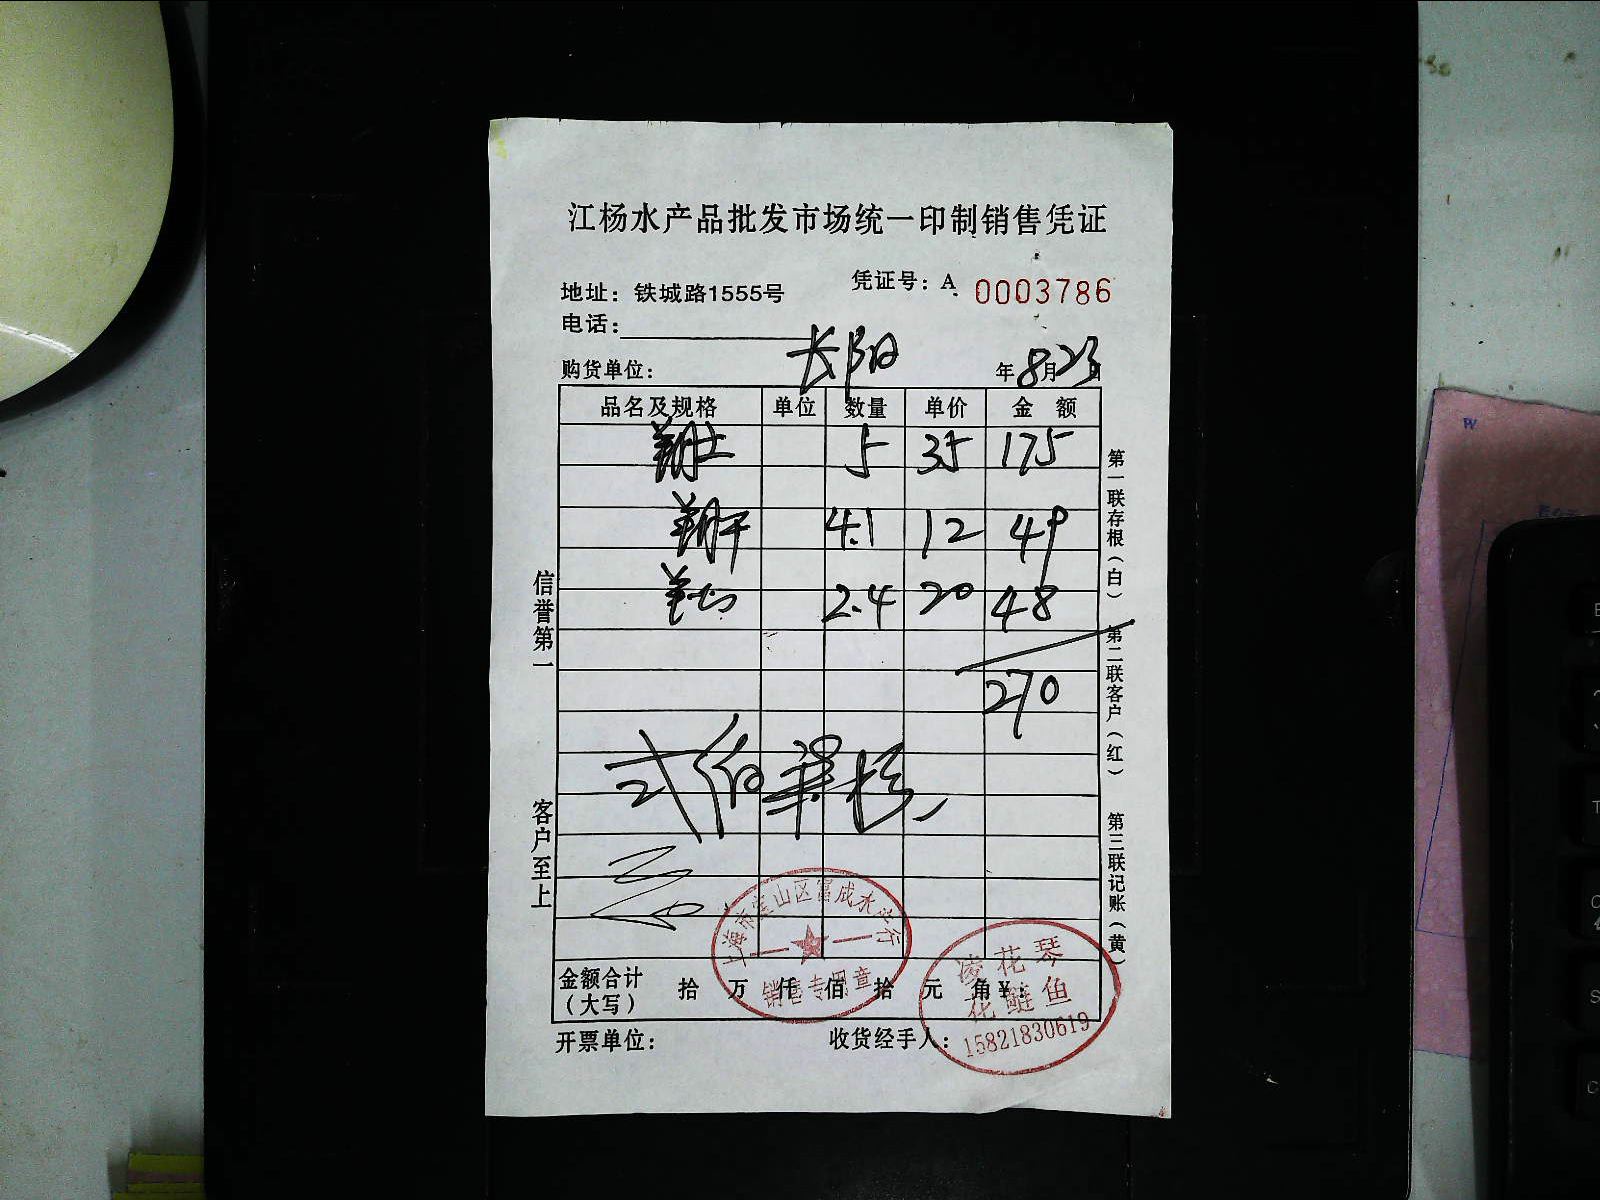 江杨水产品批发市场统一印制销售凭证
凭证号：A 0003786
地址：铁城路1555号
电话：
购货单位： 长阳 年8月23日
品名及规格 单位 数量 单价 金 额
5 35 175
4.1 12 49
2.4 20 48
270
金额合计（大写） 拾 万 仟 佰 拾 元 角 ¥：
开票单位： 收货经手人：
信誉第一 客户至上
第一联存根（白） 第二联客户（红） 第三联记账（黄）
上海市宝山区富成水产行
销售专用章
凌花琴
花鲢鱼
15821830619